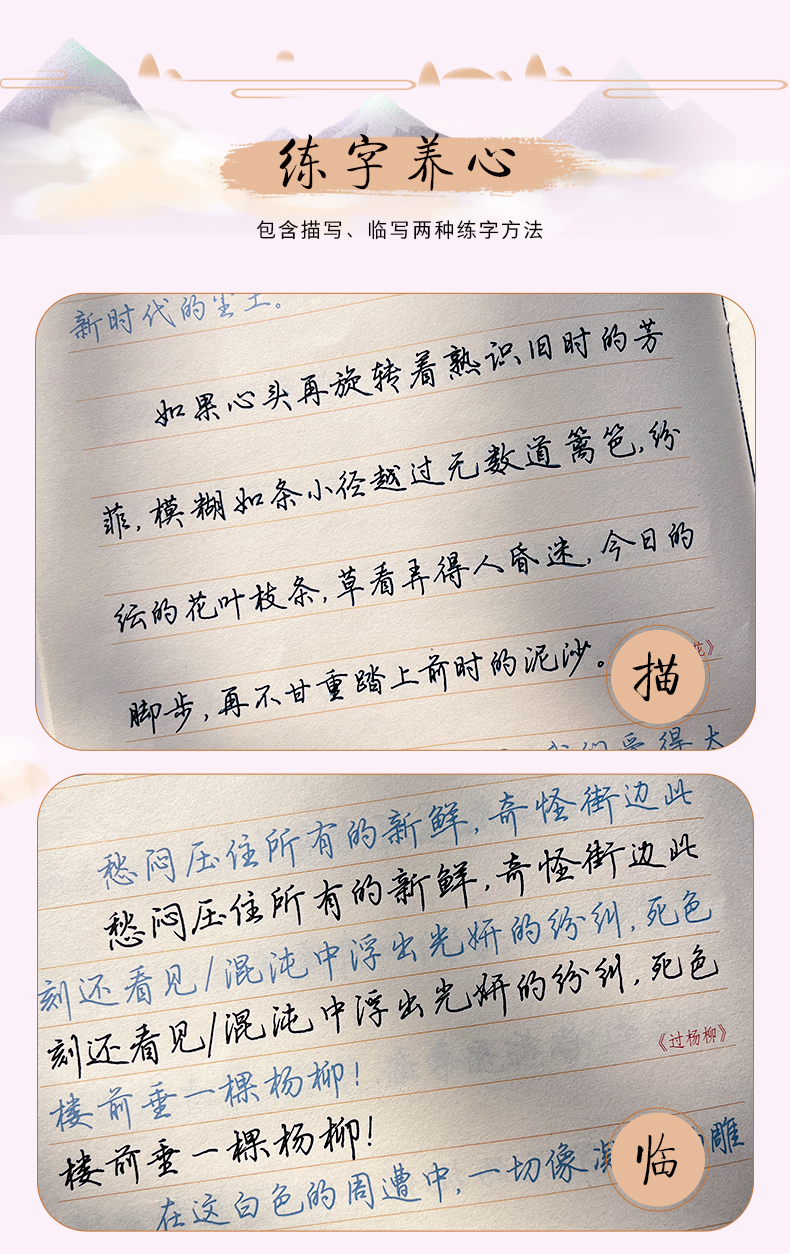 练字养心
包含描写、临写两种练字方法
新时代的尘土。
如果心头再旋转着熟识旧时的芳
菲,模糊如条小径越过无数道篱笆,纷
纭的花叶枝条,草看弄得人昏迷,今日的
脚步,再不甘重踏上前时的泥沙。
花》
描
我们爱得太
愁闷压住所有的新鲜,奇怪街边此
愁闷压住所有的新鲜,奇怪街边此
刻还看见/混沌中浮出光妍的纷纠,死色
刻还看见/混沌中浮出光妍的纷纠,死色
《过杨柳》
楼前垂一棵杨柳!
楼前垂一棵杨柳!
在这白色的周遭中,一切像凝 雕
临